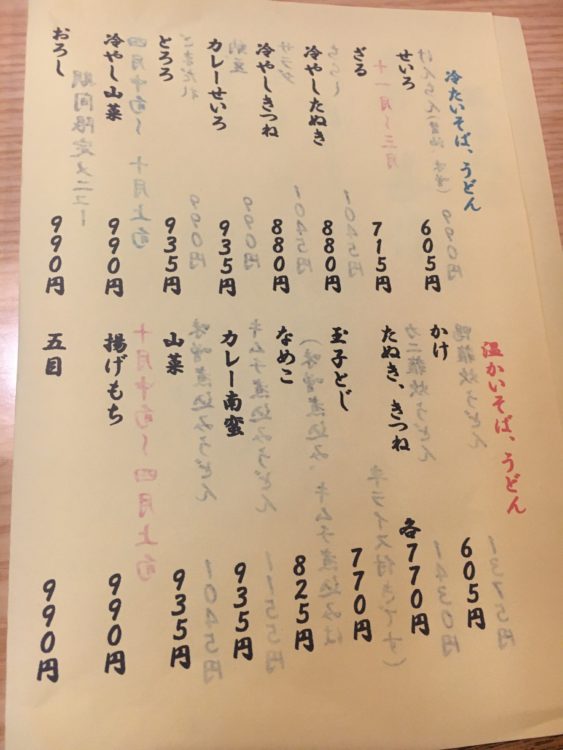 冷たいそば、うどん
せいろ 605円
ざる 715円
冷やしたぬき 880円
冷やしきつね 880円
カレーせいろ 935円
とろろ 935円
冷やし山菜 990円
おろし 990円
温かいそば、うどん
かけ 605円
たぬき、きつね 各770円
玉子とじ 770円
なめこ 825円
カレー南蛮 935円
山菜 935円
揚げもち 990円
五目 990円